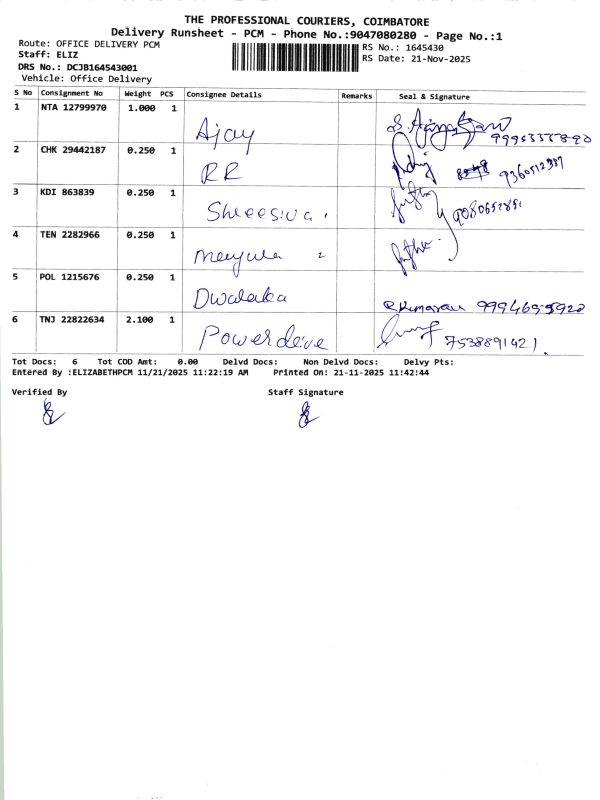 THE PROFESSIONAL COURIERS, COIMBATORE
Delivery Runsheet - PCM - Phone No.:9047080280 - Page No.:1
Route: OFFICE DELIVERY PCM
RS No.: 1645430
Staff: ELIZ
RS Date: 21-Nov-2025
DRS No.: DCJB164543001
Vehicle: Office Delivery
S No Consignment No Weight PCS Consignee Details Remarks Seal & Signature
1 NTA 12799970 1.000 1 Ajay
2 CHK 29442187 0.250 1 RR
3 KDI 863839 0.250 1 Shreesiva.
4 TEN 2282966 0.250 1
5 POL 1215676 0.250 1 Dwalaka
6 TNJ 22822634 2.100 1 Powerdeve 7538891421.
Tot Docs: 6 Tot COD Amt: 0.00 Delvd Docs: Non Delvd Docs: Delvy Pts:
Entered By :ELIZABETHPCM 11/21/2025 11:22:19 AM Printed On: 21-11-2025 11:42:44
Verified By Staff Signature